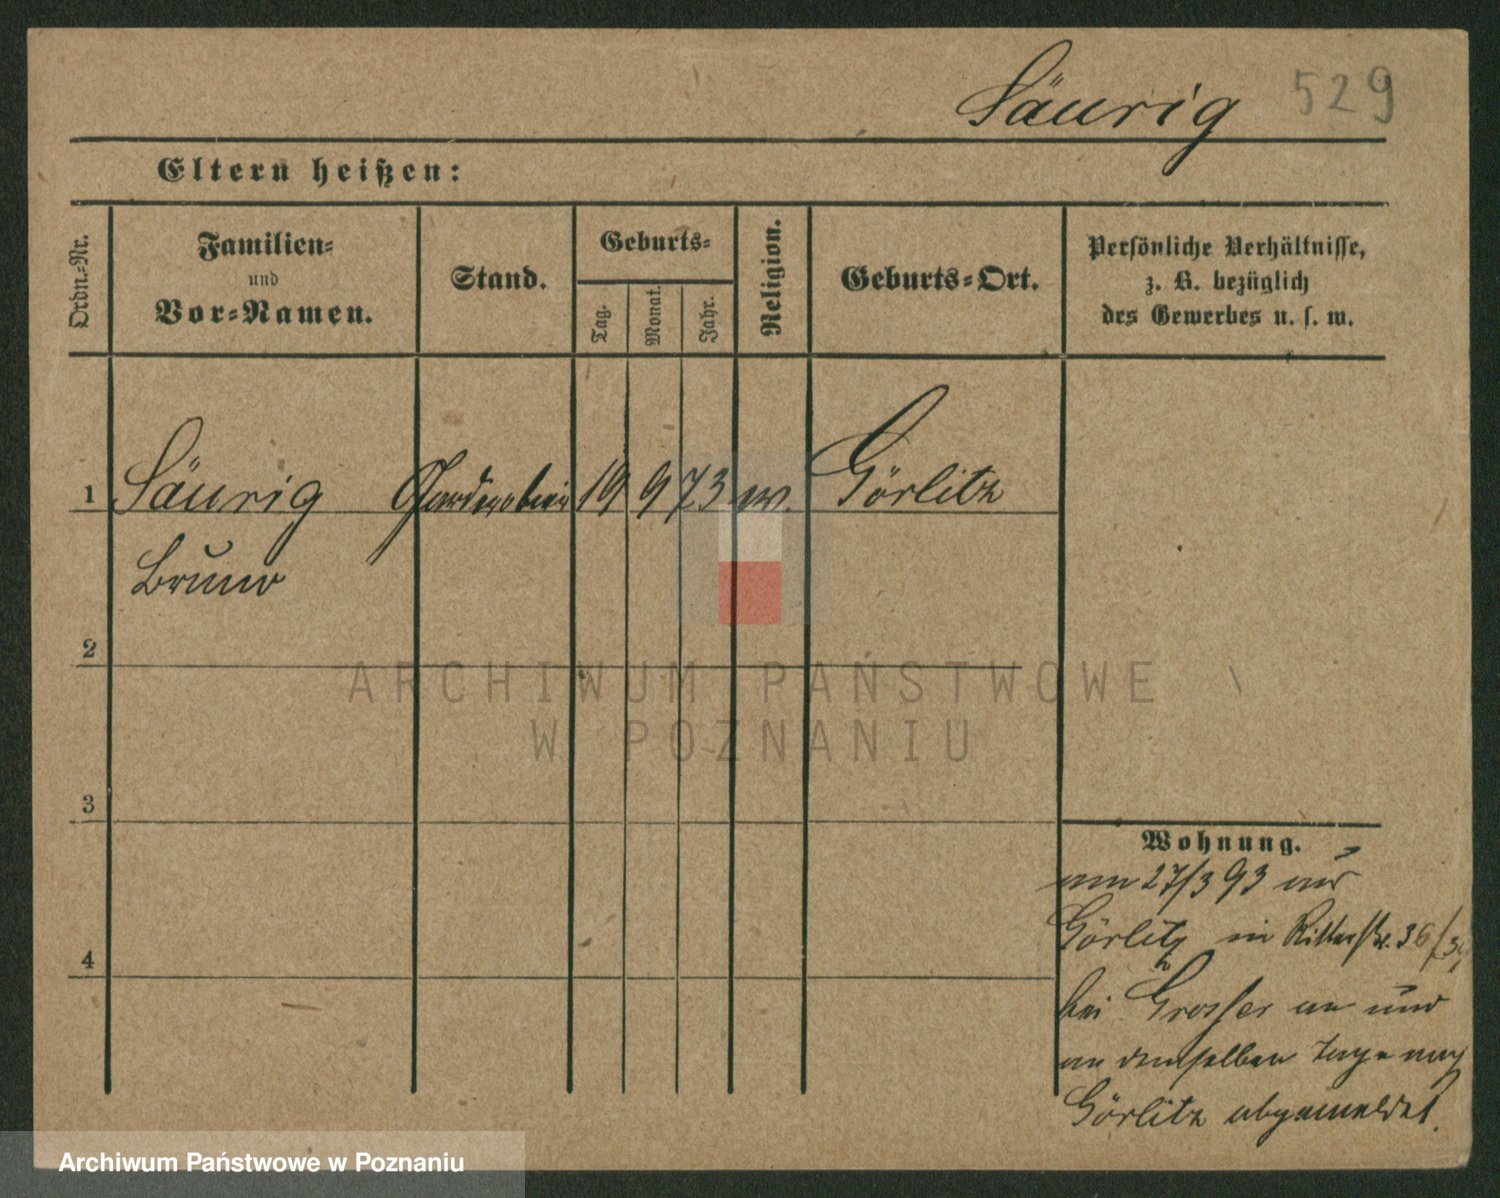 Säurig 529
Eltern heißen:
Ordn.-Nr.
Familien-
und
Vor-Namen.
Stand.
Geburts-
Tag.
Monat.
Jahr.
Religion.
Geburts-Ort.
Persönliche Verhältnisse,
z. B. bezüglich
des Gewerbes u. s. w.
1 Säurig Garderobier 19 9 73 ev. Görlitz
Bruno
2
3
4
Wohnung.
am 27/3 93 aus
Görlitz in Ritterstr. 36/
bei Grosser an und
an demselben Tage nach
Görlitz abgemeldet.
ARCHIWUM PAŃSTWOWE
W POZNANIU
Archiwum Państwowe w Poznaniu